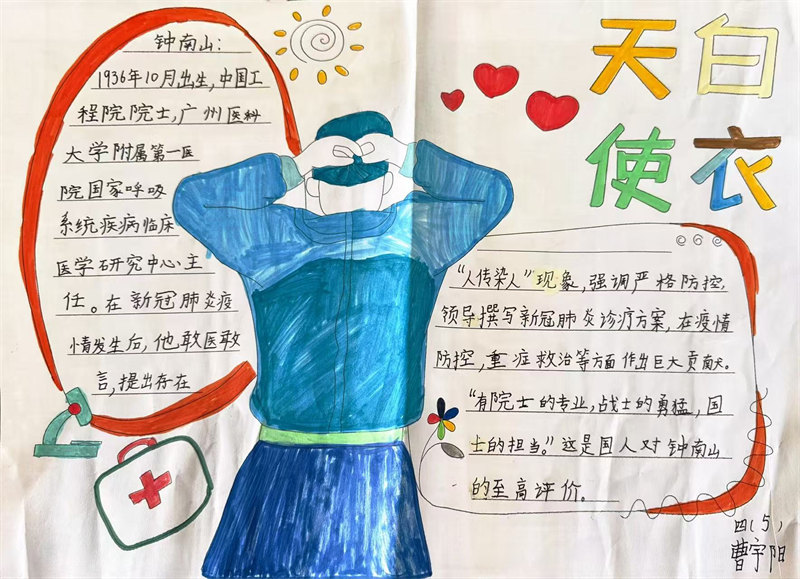 天白
使衣
钟南山:
1936年10月出生,中国工
程院院士,广州医科
大学附属第一医
院国家呼吸
系统疾病临床
医学研究中心主
任。在新冠肺炎疫
情发生后,他敢医敢
言,提出存在
“人传染人”现象,强调严格防控,
领导撰写新冠肺炎诊疗方案,在疫情
防控,重症救治等方面作出巨大贡献。
“有院士的专业,战士的勇猛,国
士的担当。”这是国人对钟南山
的至高评价。
四(5)
曹宇阳